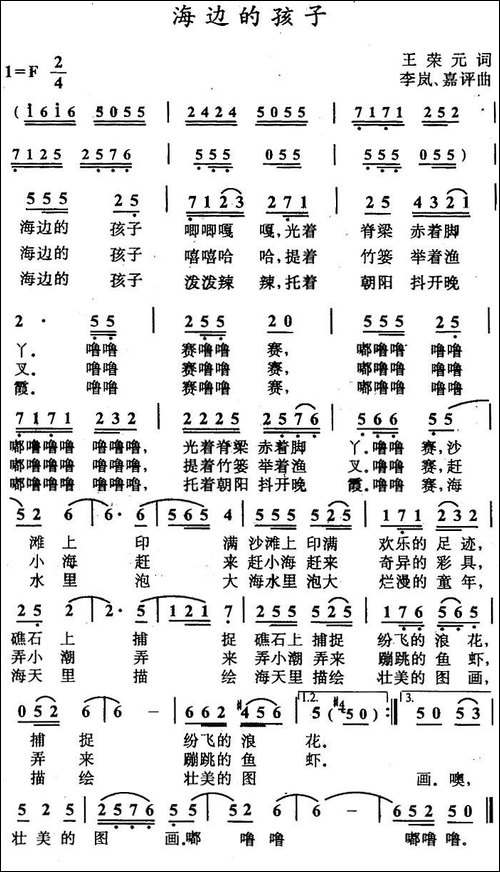 海边的孩子
1=F 2/4
王荣元词
李岚、嘉评曲
(1616 5055 | 2424 5055 | 7171 2512 |
7125 2576 | 555 055 | 555 055) |
555 25 | 7123 271 | 25 4321 |
海边的 孩子 唧唧嘎 嘎,光着 脊梁 赤着脚
海边的 孩子 嘻嘻哈 哈,提着 竹篓 举着渔
海边的 孩子 泼泼辣 辣,托着 朝阳 抖开晚
2· 55 | 255 20 | 555 225 |
丫. 噜噜 赛噜噜 赛, 嘟噜噜 噜噜
叉. 噜噜 赛噜噜 赛, 嘟噜噜 噜噜
霞. 噜噜 赛噜噜 赛, 嘟噜噜 噜噜
7171 232 | 2225 2576 | 566 55 |
嘟噜噜噜 噜噜噜, 光着脊梁 赤着脚 丫.噜噜 赛,沙
嘟噜噜噜 噜噜噜, 提着竹篓 举着渔 叉.噜噜 赛,赶
嘟噜噜噜 噜噜噜, 托着朝阳 抖开晚 霞.噜噜 赛,海
52 6 | 6· 5 | 565 4 | 555 525 | 171 232 |
滩上 印 满 沙滩上 印满 欢乐的 足迹,
小海 赶 来 赶小海 赶来 奇异的 彩具,
水里 泡 大 海水里 泡大 烂漫的 童年,
225 2 | 2· 5 | 121 7 | 255 525 | 176 565 |
礁石上 捕 捉 礁石上 捕捉 纷飞的 浪花,
弄小潮 弄 来 弄小潮 弄来 蹦跳的 鱼虾,
海天里 描 绘 海天里 描绘 壮美的 图画,
052 6 | 6 - | 662 #456 | 1.2. 5(#4 50) :| 3. 50 53 |
捕捉 纷飞的 浪 花.
弄来 蹦跳的 鱼 虾.
描绘 壮美的 图 画。噢,
5 25 | 2576 552 | 52 6 | 6 - | 652 50 ||
壮美的 图 画.嘟 噜噜 嘟噜噜.